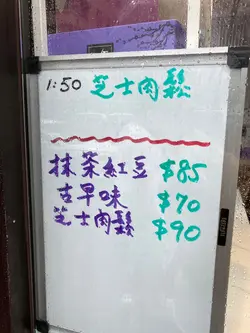 1:50 芝士肉鬆
抹茶紅豆 $85
古早味 $70
芝士肉鬆 $90